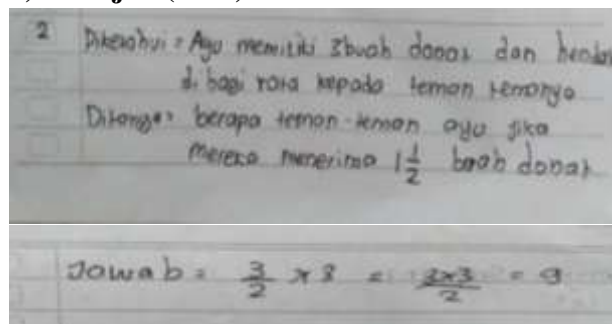 2 Diketahui = Ayu memiliki 3 buah donat dan hendak
di bagi rata kepada teman temanya
Ditanya = berapa teman-teman ayu jika
mereka menerima 1 1/2 buah donat
Jowab = 3/2 × 3 = 3×3/2 = 9